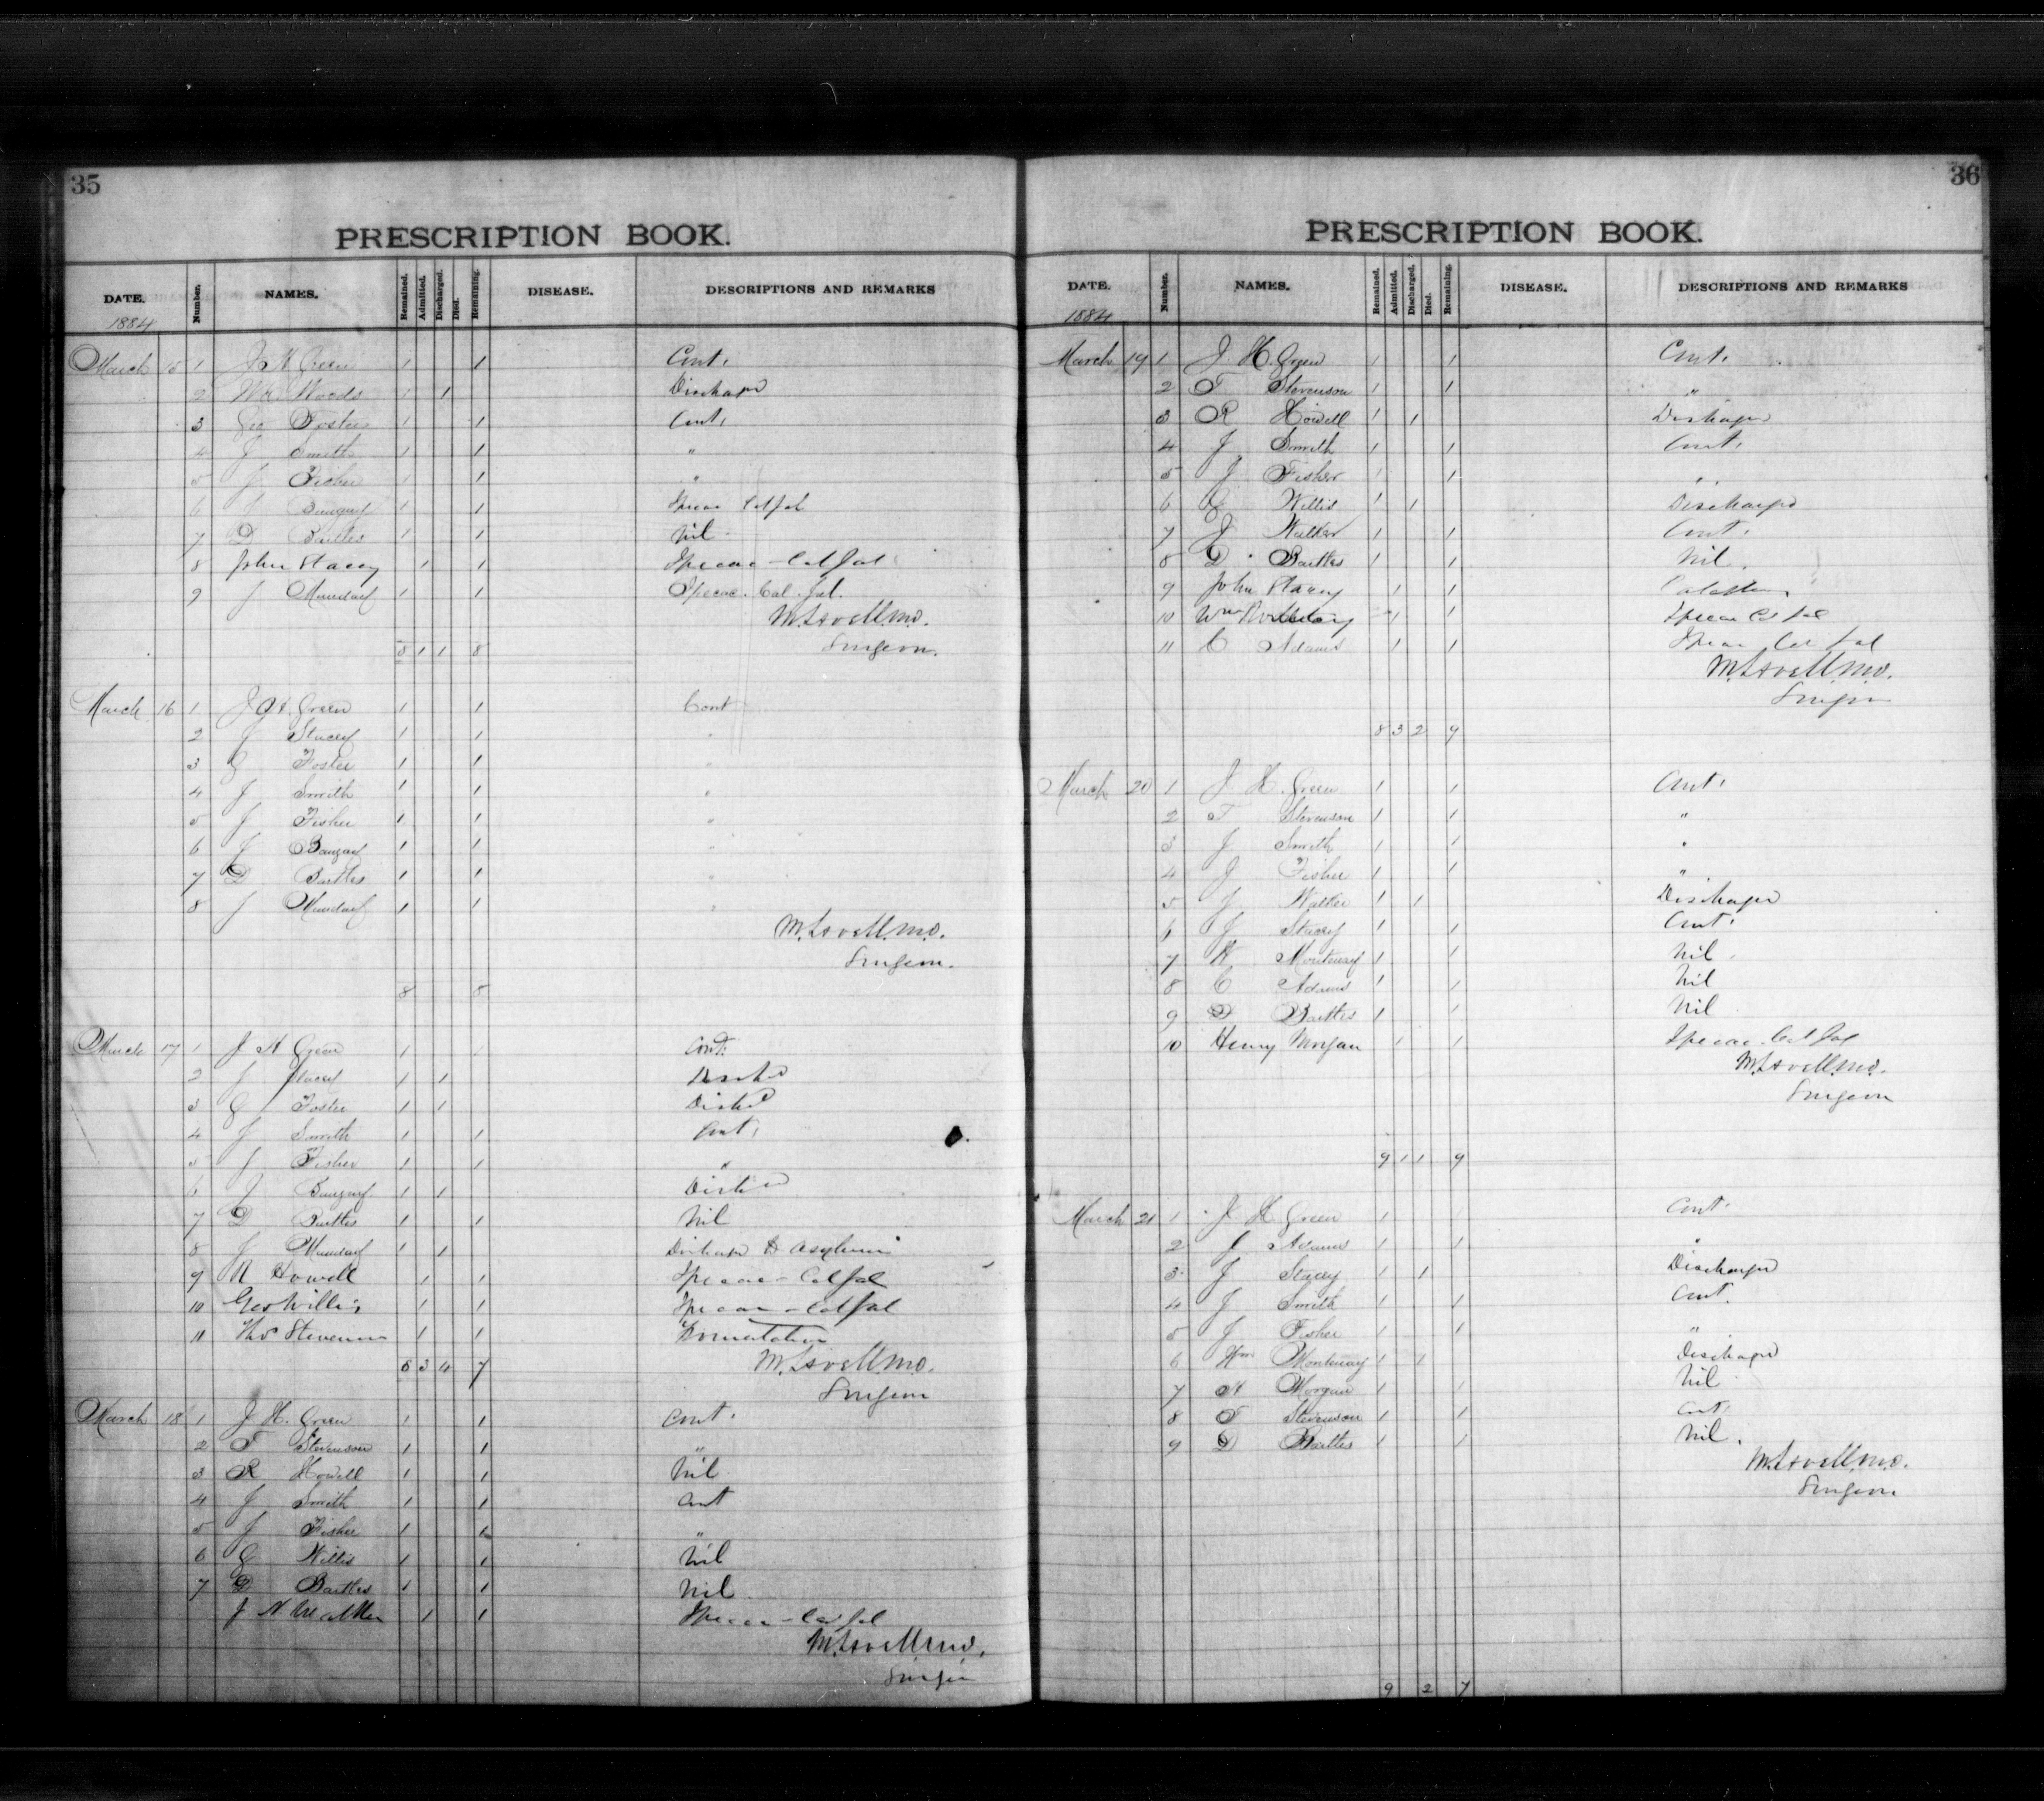 35
PRESCRIPTION BOOK.
DATE. Number. NAMES. Remained. Admitted. Discharged. Died. Remaining. DISEASE. DESCRIPTIONS AND REMARKS
1884
March 15 1 J H Green 1 1 Cont.
2 Woods 1 1 Discharged
3 Geo Foster 1 1 Cont.
4 J Smith 1 1 "
5 J Fisher 1 1 "
6 J 1 1 Ipecac Cal Jal
7 D Bartles 1 1 Nil
8 John Stacey 1 1 Ipecac - Cal Jal
9 J Munday 1 1 Ipecac. Cal. Jal.
M. Lavell M.D.
Surgeon.
8 1 1 8
March 16 1 J H Green 1 1 Cont
2 J Stacey 1 1 "
3 G Foster 1 1 "
4 J Smith 1 1 "
5 J Fisher 1 1 "
6 J 1 1 "
7 D Bartles 1 1 "
8 J Munday 1 1 "
M. Lavell M.D.
Surgeon.
8 8
March 17 1 J H Green 1 1 Cont.
2 J Stacey 1 1 Disch'd
3 G Foster 1 1 Disch'd
4 J Smith 1 1 Cont.
5 J Fisher 1 1 "
6 J 1 1 Disch'd
7 D Bartles 1 1 Nil
8 J Munday 1 1 Discharged to Asylum
9 R Howell 1 1 Ipecac - Cal Jal
10 Geo Willis 1 1 Ipecac - Cal Jal
11 Thos Stevenson 1 1
8 3 4 7
M. Lavell M.D.
Surgeon
March 18 1 J H. Green 1 1 Cont.
2 T Stevenson 1 1 "
3 R Howell 1 1 Nil
4 J Smith 1 1 Cont
5 J Fisher 1 1 "
6 G Willis 1 1 Nil
7 D Bartles 1 1 Nil
J N Walker 1 1 Ipecac - Cal Jal
M. Lavell M.D.
Surgeon
36
PRESCRIPTION BOOK.
DATE. Number. NAMES. Remained. Admitted. Discharged. Died. Remaining. DISEASE. DESCRIPTIONS AND REMARKS
1884
March 19 1 J. H. Green 1 1 Cont.
2 T Stevenson 1 1 "
3 R Howell 1 1 Discharged
4 J Smith 1 1 Cont.
5 J Fisher 1 1 "
6 G Willis 1 1 Discharged
7 J Walker 1 1 Cont.
8 D Bartles 1 1 Nil.
9 John Stacey 1 1
10 Wm 1 1 Ipecac Cal Jal
11 C Adams 1 1 Ipecac Cal Jal
M. Lavell M.D.
Surgeon
8 3 2 9
March 20 1 J H. Green 1 1 Cont.
2 T Stevenson 1 1 "
3 J Smith 1 1 "
4 J Fisher 1 1 "
5 J Walker 1 1 Discharged
6 J Stacey 1 1 Cont.
7 W Montenay 1 1 Nil
8 C Adams 1 1 Nil
9 D Bartles 1 1 Nil
10 Henry Morgan 1 1 Ipecac. Cal Jal
M. Lavell M.D.
Surgeon
9 1 1 9
March 21 1 J H Green 1 1 Cont.
2 Adams 1 1 "
3 J Stacey 1 1 Discharged
4 J Smith 1 1 Cont.
5 J Fisher 1 1 "
6 Wm Montenay 1 1 Discharged
7 H Morgan 1 1 Nil
8 T Stevenson 1 1 Cont.
9 D Bartles 1 1 Nil.
M. Lavell M.D.
Surgeon
9 2 7